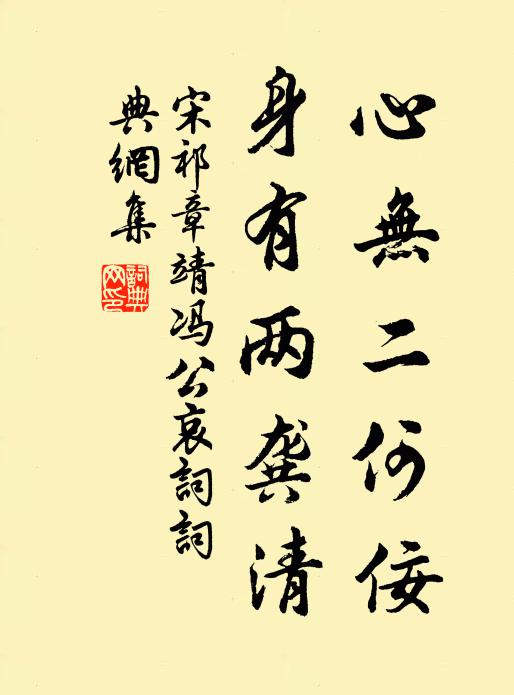 心無二何佞
身有两龔清
宋祁章靖冯公哀詞詞
典網集
詞典
网印